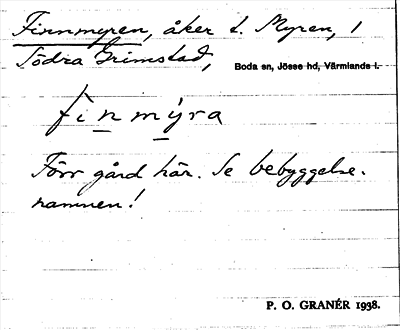 Finnmyren, åker t. Myren, 1
Södra Grimstad, Boda sn, Jösse hd, Värmlands l.
finmýra
Förr gård här. Se bebyggelse-
namnen!
P. O. GRANÉR 1938.